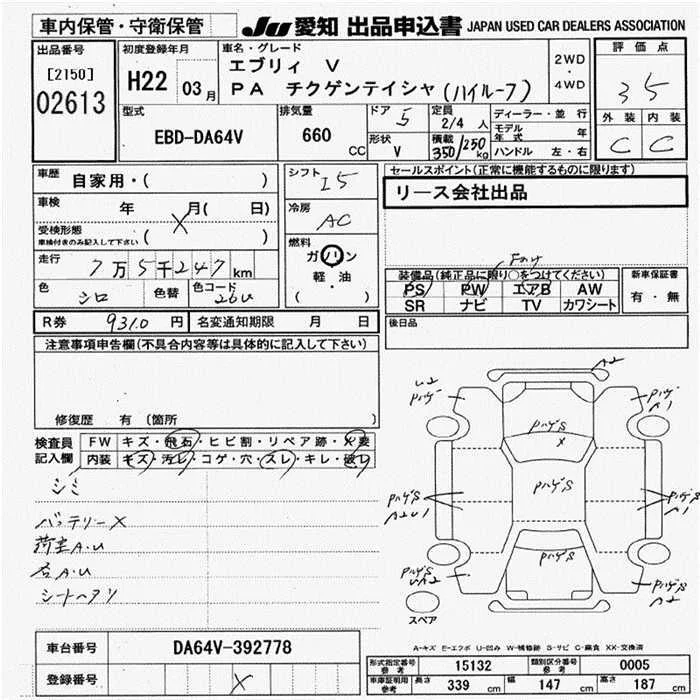 車内保管・守衛保管
JU 愛知 出品申込書 JAPAN USED CAR DEALERS ASSOCIATION
出品番号
[2150]
02613
初度登録年月
H22 03月
車名・グレード
エブリィ V
PA チクゲンテイシャ(ハイルーフ)
2WD
・
4WD
評価点
35
外装 内装
C C
型式
EBD-DA64V
排気量
660 CC
ドア 5
形状 V
定員
2/4 人
積載
350/250 kg
ディーラー・並行
モデル年式 年
ハンドル 左・右
車歴
自家用・( )
車検 年 月( 日)
受検形態 ( )
車検付きのみ記入して下さい
X
走行 7万5千247km
色 シロ 色替 色コード 26U
シフト I5
冷房 AC
燃料
ガソリン
軽・油
( )
セールスポイント(正常に機能するものに限ります)
リース会社出品
装備品(純正品に限り○をつけてください)
PS PW エアB AW
SR ナビ TV カワシート
新車保証書
有・無
後日品
R券 9310 円 名変通知期限 月 日
注意事項申告欄(不具合内容等は具体的に記入して下さい)
修復歴 有 〔箇所 〕
検査員
記入欄
FW キズ・飛石・ヒビ割・リペア跡・X要
内装 キズ・汚レ・コゲ・穴・スレ・キレ・破レ
シミ
バッテリーX
A.U
A.U
シートヘタリ
A2
U2
A1
パナS
X
パナS
パナS
パナS
A2U1
パナS
A1
パナS
UA2
パナS
A2
スペア
A-キズ E-エクボ U-凹み W-補修跡 S-サビ C-腐食 XX-交換済
車台番号 DA64V-392778
登録番号 X
形式指定番号 参考 15132 類別区分番号 参考 0005
車庫証明用 参考 長さ 339 cm 幅 147 cm 高さ 187 cm